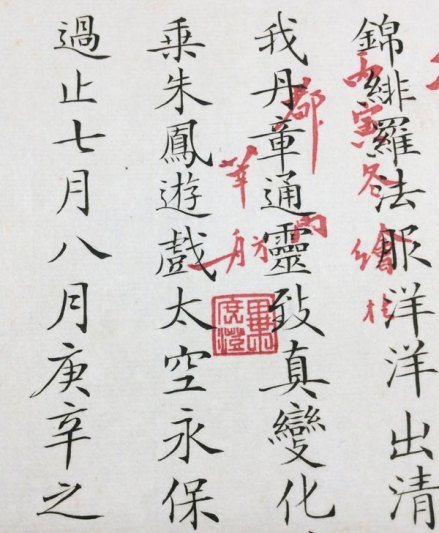 錦緋羅法服洋洋出清
我丹章通靈致真變化
乘朱鳳遊戲太空永保
過止七月八月庚辛之
寅冬繪
都